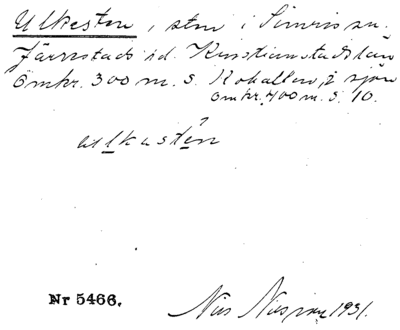 Ulkesten, sten i Simris sn.
Järrestads hd. Kristianstads län
Omkr. 300 m. S. Rokallen, i sjön
Omkr. 400 m. S. 10.
ulkastên
Nr 5466.
Nils Nilsson 1931.